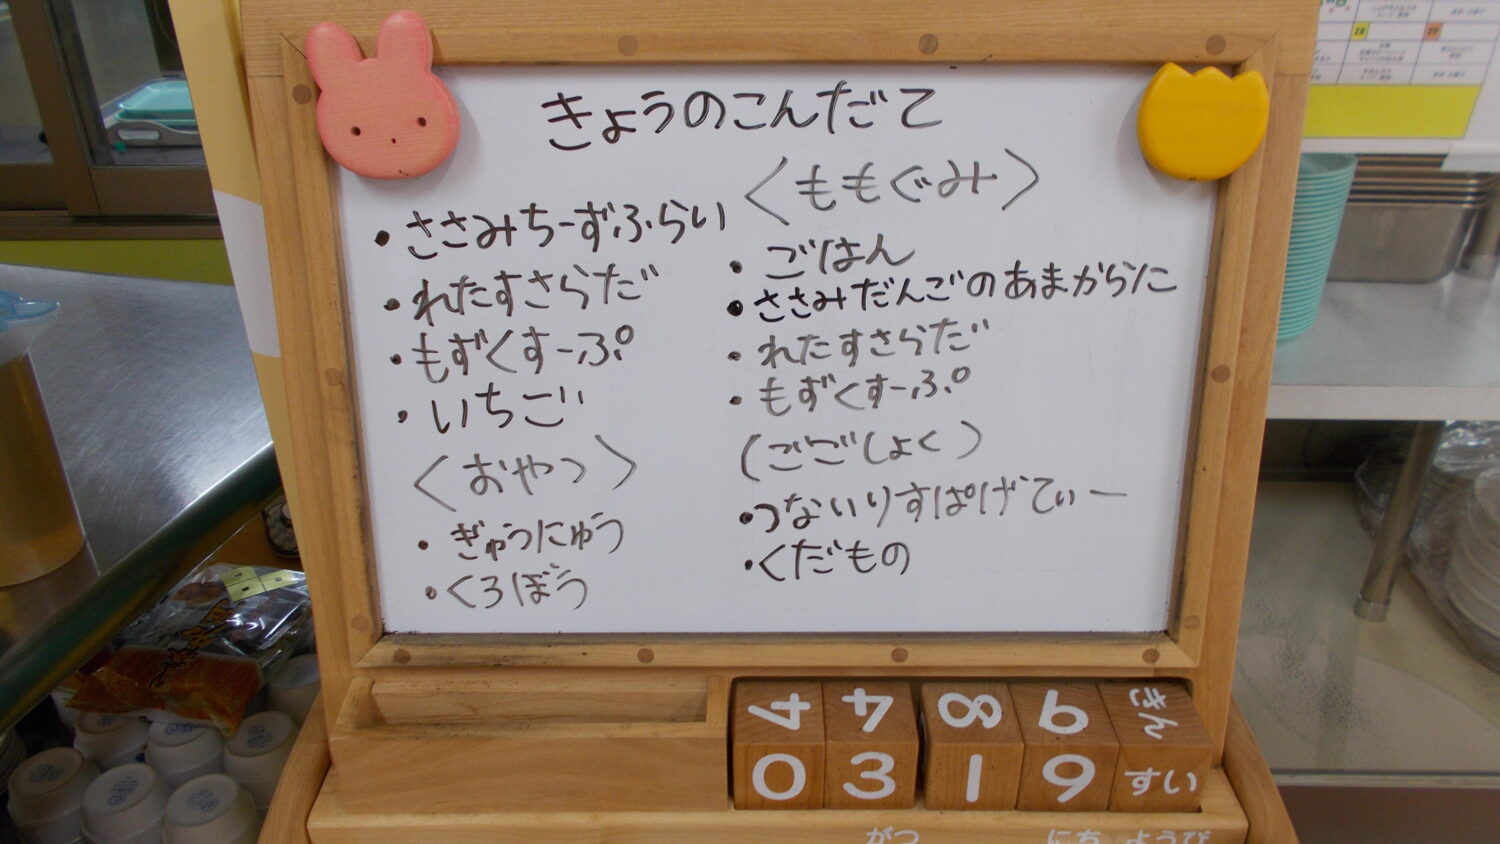 きょうのこんだて
・ささみちーずふらい
・れたすさらだ
・もずくすーぷ
・いちご
〈おやつ〉
・ぎゅうにゅう
・くろぼう
〈ももぐみ〉
・ごはん
・ささみだんごのあまからに
・れたすさらだ
・もずくすーぷ
(ごごしょく)
・つないりすぱげてぃー
・くだもの
4 4 8 6 きん
0 3 1 9 すい
がつ にち ようび